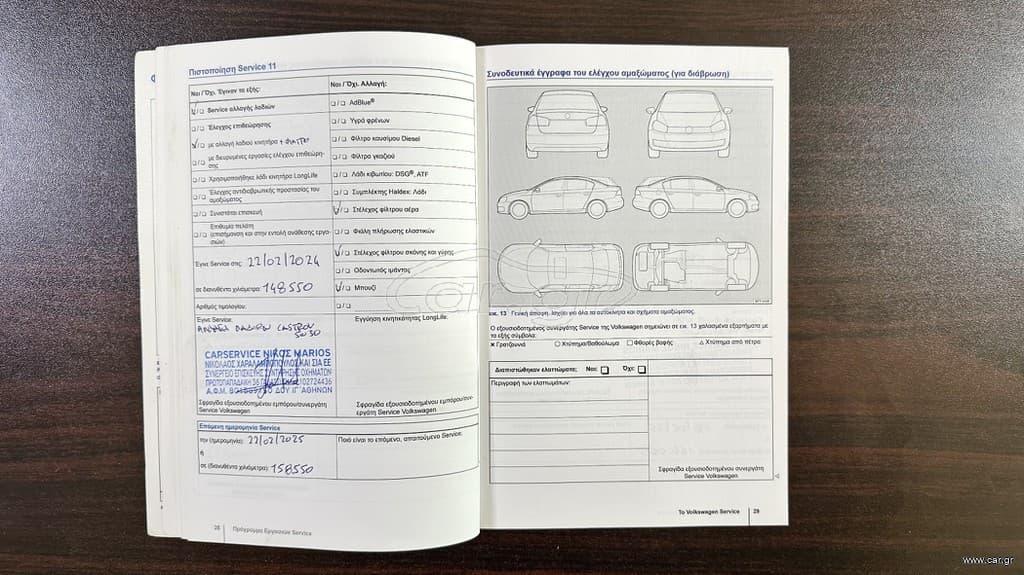 Πιστοποίηση Service 11
Ναι / Όχι. Έγιναν τα εξής:
Service αλλαγής λαδιών
Έλεγχος επιθεώρησης
με αλλαγή λαδιού κινητήρα + ΦΙΛΤΡΟ
με διευρυμένες εργασίες ελέγχου επιθεώρη-
σης
Χρησιμοποιήθηκε λάδι κινητήρα LongLife
Έλεγχος αντιδιαβρωτικής προστασίας του
αμαξώματος
Συνιστάται επισκευή
Επιθυμία πελάτη
(επισήμανση και στην εντολή ανάθεσης εργα-
σιών)
Έγινε Service στις: 22/02/2024
σε διανυθέντα χιλιόμετρα: 148550
Αριθμός τιμολογίου:
Έγινε Service:
CASTROL
5W30
CARSERVICE ΝΙΚΟΣ MARIOS
ΝΙΚΟΛΑΟΣ ΧΑΡΑΛΑΜΠΟΠΟΥΛΟΣ ΚΑΙ ΣΙΑ ΕΕ
ΣΥΝΕΡΓΕΙΟ ΕΠΙΣΚΕΥΗΣ ΣΥΝΤΗΡΗΣΗΣ ΟΧΗΜΑΤΩΝ
ΠΡΩΤΟΠΑΠΑΔΑΚΗ
Α.Φ.Μ. ΔΟΥ ΙΓ' ΑΘΗΝΩΝ
Σφραγίδα εξουσιοδοτημένου εμπόρου/συνεργάτη
Service Volkswagen
Επόμενη ημερομηνία Service
την (ημερομηνία): 22/02/2025
ή
σε (διανυθέντα χιλιόμετρα): 158550
Ναι / Όχι. Αλλαγή:
AdBlue®
Υγρά φρένων
Φίλτρο καυσίμου Diesel
Φίλτρο γκαζιού
Λάδι κιβωτίου: DSG®, ATF
Συμπλέκτης Haldex: Λάδι
Στέλεχος φίλτρου αέρα
Φιάλη πλήρωσης ελαστικών
Στέλεχος φίλτρου σκόνης και γύρης
Οδοντωτός ιμάντας
Μπουζί
Εγγύηση κινητικότητας LongLife:
Σφραγίδα εξουσιοδοτημένου εμπόρου/συν-
εργάτη Service Volkswagen
Ποιό είναι το επόμενο, απαιτούμενο Service:
28 Πρόγραμμα Εργασιών Service
Συνοδευτικά έγγραφα του ελέγχου αμαξώματος (για διάβρωση)
εικ. 13 Γενική άποψη. Ισχύει για όλα τα αυτοκίνητα και σχήματα αμαξώματος.
Ο εξουσιοδοτημένος συνεργάτης Service της Volkswagen σημειώνει σε εικ. 13 χαλασμένα εξαρτήματα με
τα εξής σύμβολα:
× Γρατζουνιά ○ Χτύπημα/Βαθούλωμα □ Φθορές βαφής △ Χτύπημα από πέτρα
Διαπιστώθηκαν ελαττώματα: Ναι: Όχι:
Περιγραφή των ελαττωμάτων:
Σφραγίδα εξουσιοδοτημένου συνεργάτη
Service Volkswagen
Το Volkswagen Service 29
car.gr
www.car.gr